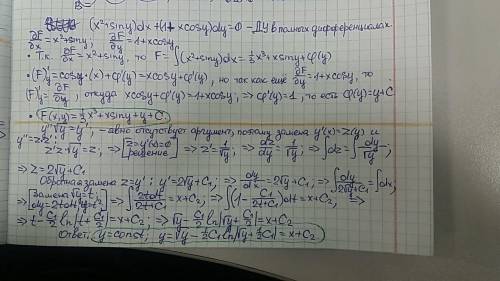 B=
(x²+siny)dx+(1+xcosy)dy=0 – ДУ в полных дифференциалах
∂F/∂x=x²+siny, ∂F/∂y=1+xcosy
• Т.к. ∂F/∂x=x²+siny, то F=∫(x²+siny)dx=⅓x³+xsiny+φ(y)
• (F)'y=cosy·(x)+φ'(y)=xcosy+φ'(y), но так как ещё ∂F/∂y=1+xcosy, то
(F)'y=∂F/∂y, откуда xcosy+φ'(y)=1+xcosy, ⇒ φ'(y)=1, то есть φ(y)=y+C
• F(x,y)=⅓x³+xsiny+y+C
y''√y=y' – явно отсутствует аргумент, поэтому замена y'(x)=z(y) и
y''=zz': z'z√y=z; ⇒ [z=y'(x)=0 решение] ⇒ z'=1/√y; ⇒ dz/dy=1/√y; ⇒ ∫dz=∫dy/√y; ⇒
⇒ z=2√y+C₁
Обратная замена z=y'; y'=2√y+C₁; ⇒ dy/dx=2√y+C₁; ⇒ ∫dy/(2√y+C₁)=∫dx; ⇒
⇒ [замена √y=t; dy=2tdt, y=t²] ⇒ ∫2tdt/(2t+C₁)=x+C₂; ⇒ ∫(1-C₁/(2t+C₁))dt=x+C₂; ⇒
⇒ t-C₁/2 ln|t+C₁/2|=x+C₂; ⇒ √y-C₁/2 ln|√y+C₁/2|=x+C₂
Ответ: y=const; y=√y-½C₁ln|√y+½C₁|=x+C₂